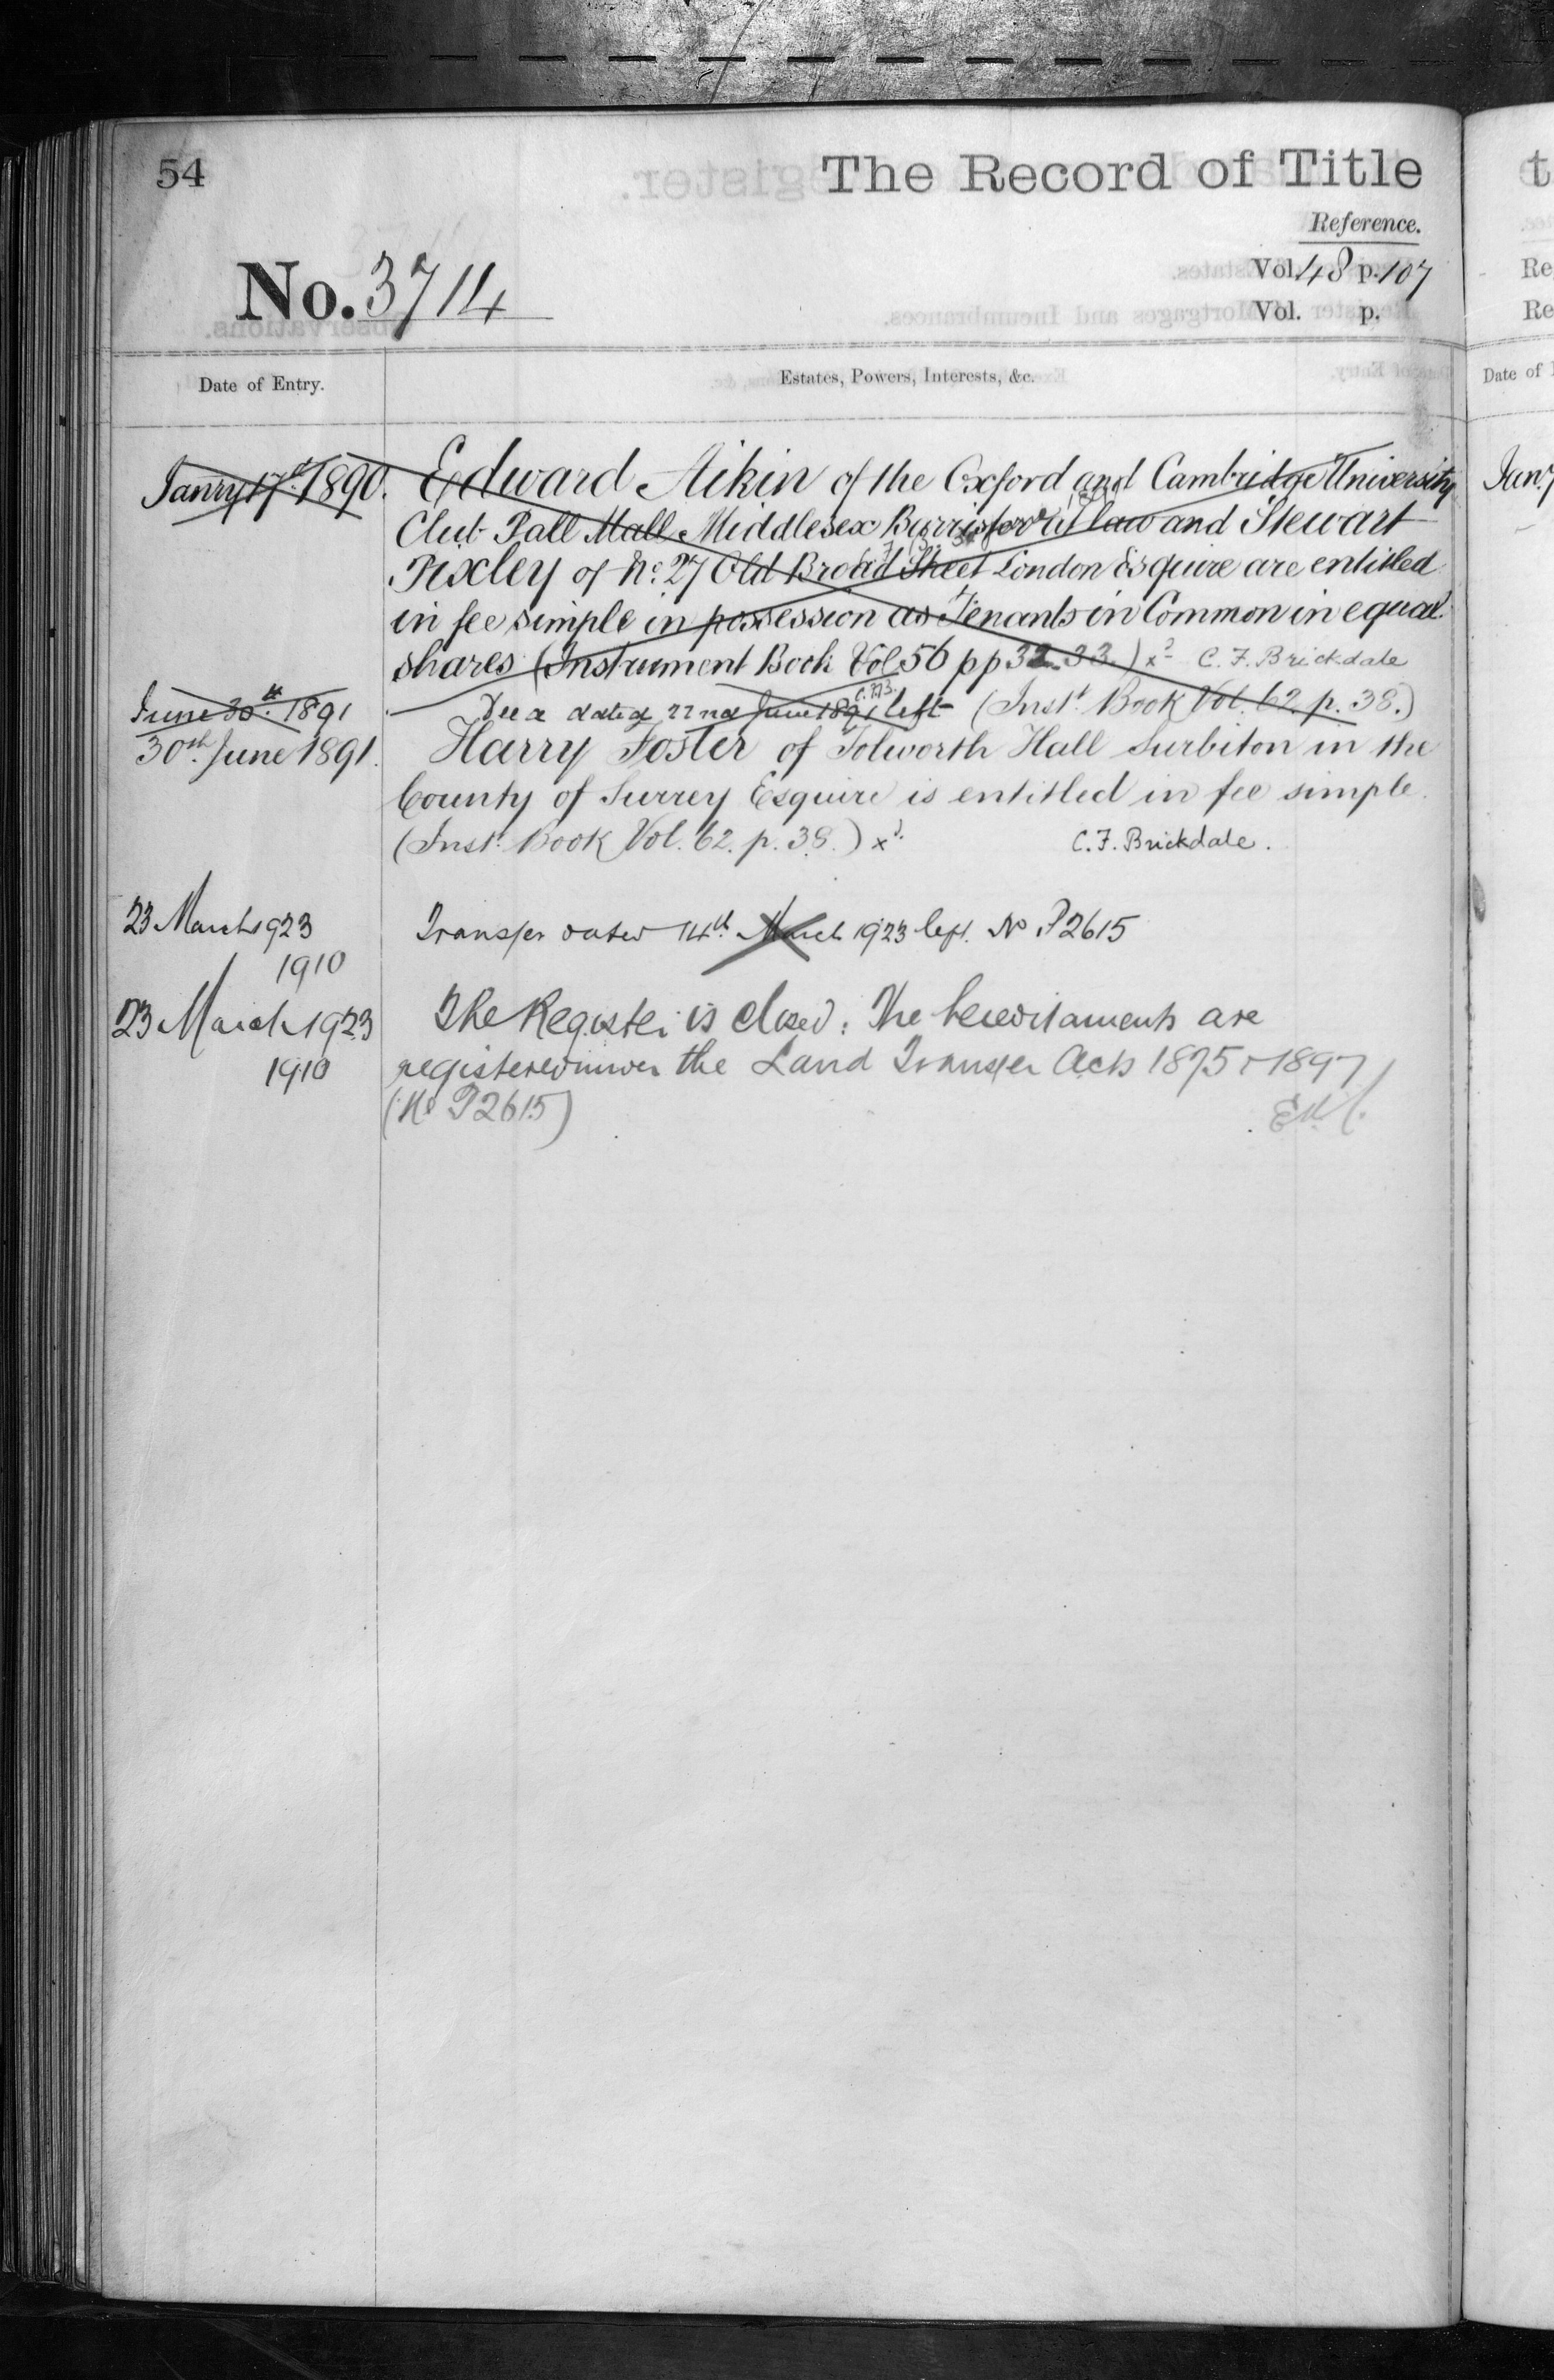 54
The Record of Title
Reference.
No. 3714
Vol. 48 p. 107
Vol. p.
Date of Entry.
Estates, Powers, Interests, &c.
Janry 17th 1890. Edward Aikin of the Oxford and Cambridge University
Club Pall Mall Middlesex Barrister at law and Stewart
Pixley of No. 27 Old Broad Street London Esquire are entitled
in fee simple in possession as Tenants in Common in equal
shares (Instrument Book Vol 56 pp 32. 33.) x C. F. Brickdale
June 30th 1891 Deed dated 22nd June 1891 left (Inst. Book Vol. 62. p. 38.)
30th June 1891. Harry Foster of Tolworth Hall Surbiton in the
County of Surrey Esquire is entitled in fee simple.
(Inst. Book Vol. 62. p. 38.) x C. F. Brickdale.
23 March 1923 Transfer dated 14th March 1923 left. No P2615
1910
23 March 1923 The Register is closed: The hereditaments are
1910 registered under the Land Transfer Acts 1875 & 1897
(No P2615)
t
Re
Re
Date of